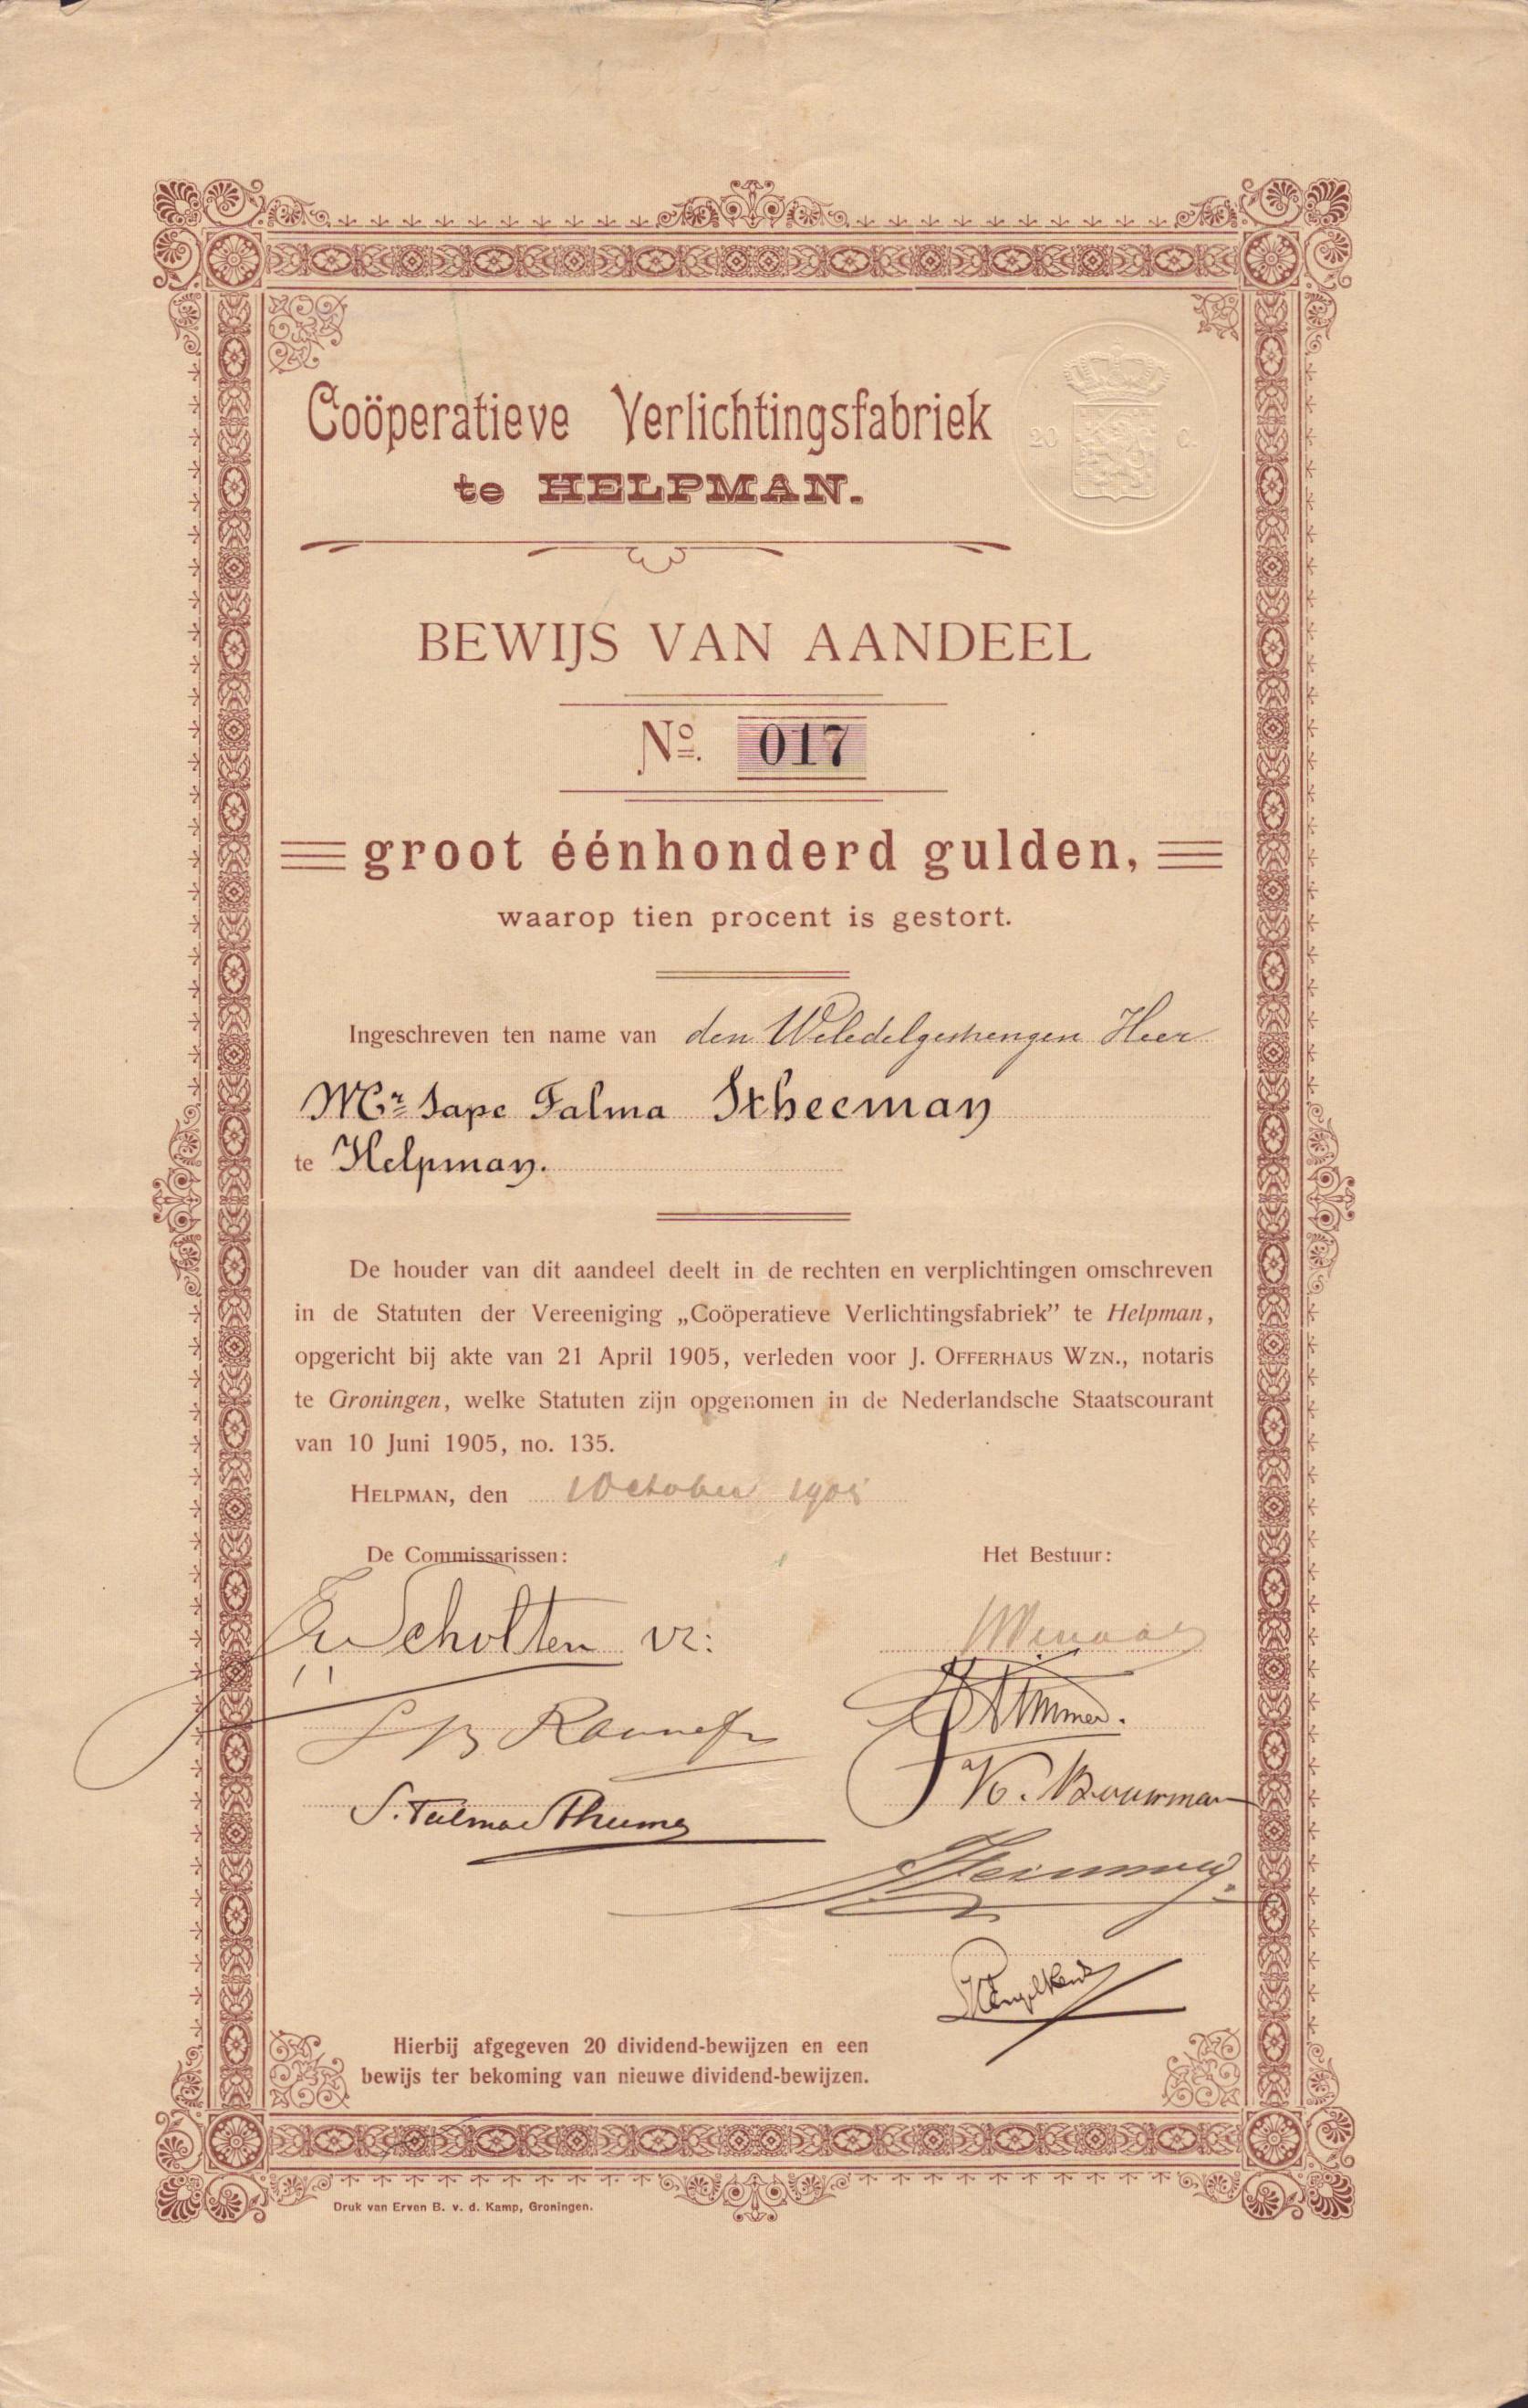 Coöperatieve Verlichtingsfabriek
te HELPMAN.
20 C.
BEWIJS VAN AANDEEL
Nº. 017
groot éénhonderd gulden,
waarop tien procent is gestort.
Ingeschreven ten name van den Weledelgestrengen Heer
Mr Sape Talma Stheeman
te Helpman.
De houder van dit aandeel deelt in de rechten en verplichtingen omschreven
in de Statuten der Vereeniging „Coöperatieve Verlichtingsfabriek” te Helpman,
opgericht bij akte van 21 April 1905, verleden voor J. OFFERHAUS WZN., notaris
te Groningen, welke Statuten zijn opgenomen in de Nederlandsche Staatscourant
van 10 Juni 1905, no. 135.
HELPMAN, den 1 October 1905
De Commissarissen: Het Bestuur:
Scholten
S. Talma Stheeman
K. Bouwman
Hierbij afgegeven 20 dividend-bewijzen en een
bewijs ter bekoming van nieuwe dividend-bewijzen.
Druk van Erven B. v. d. Kamp, Groningen.